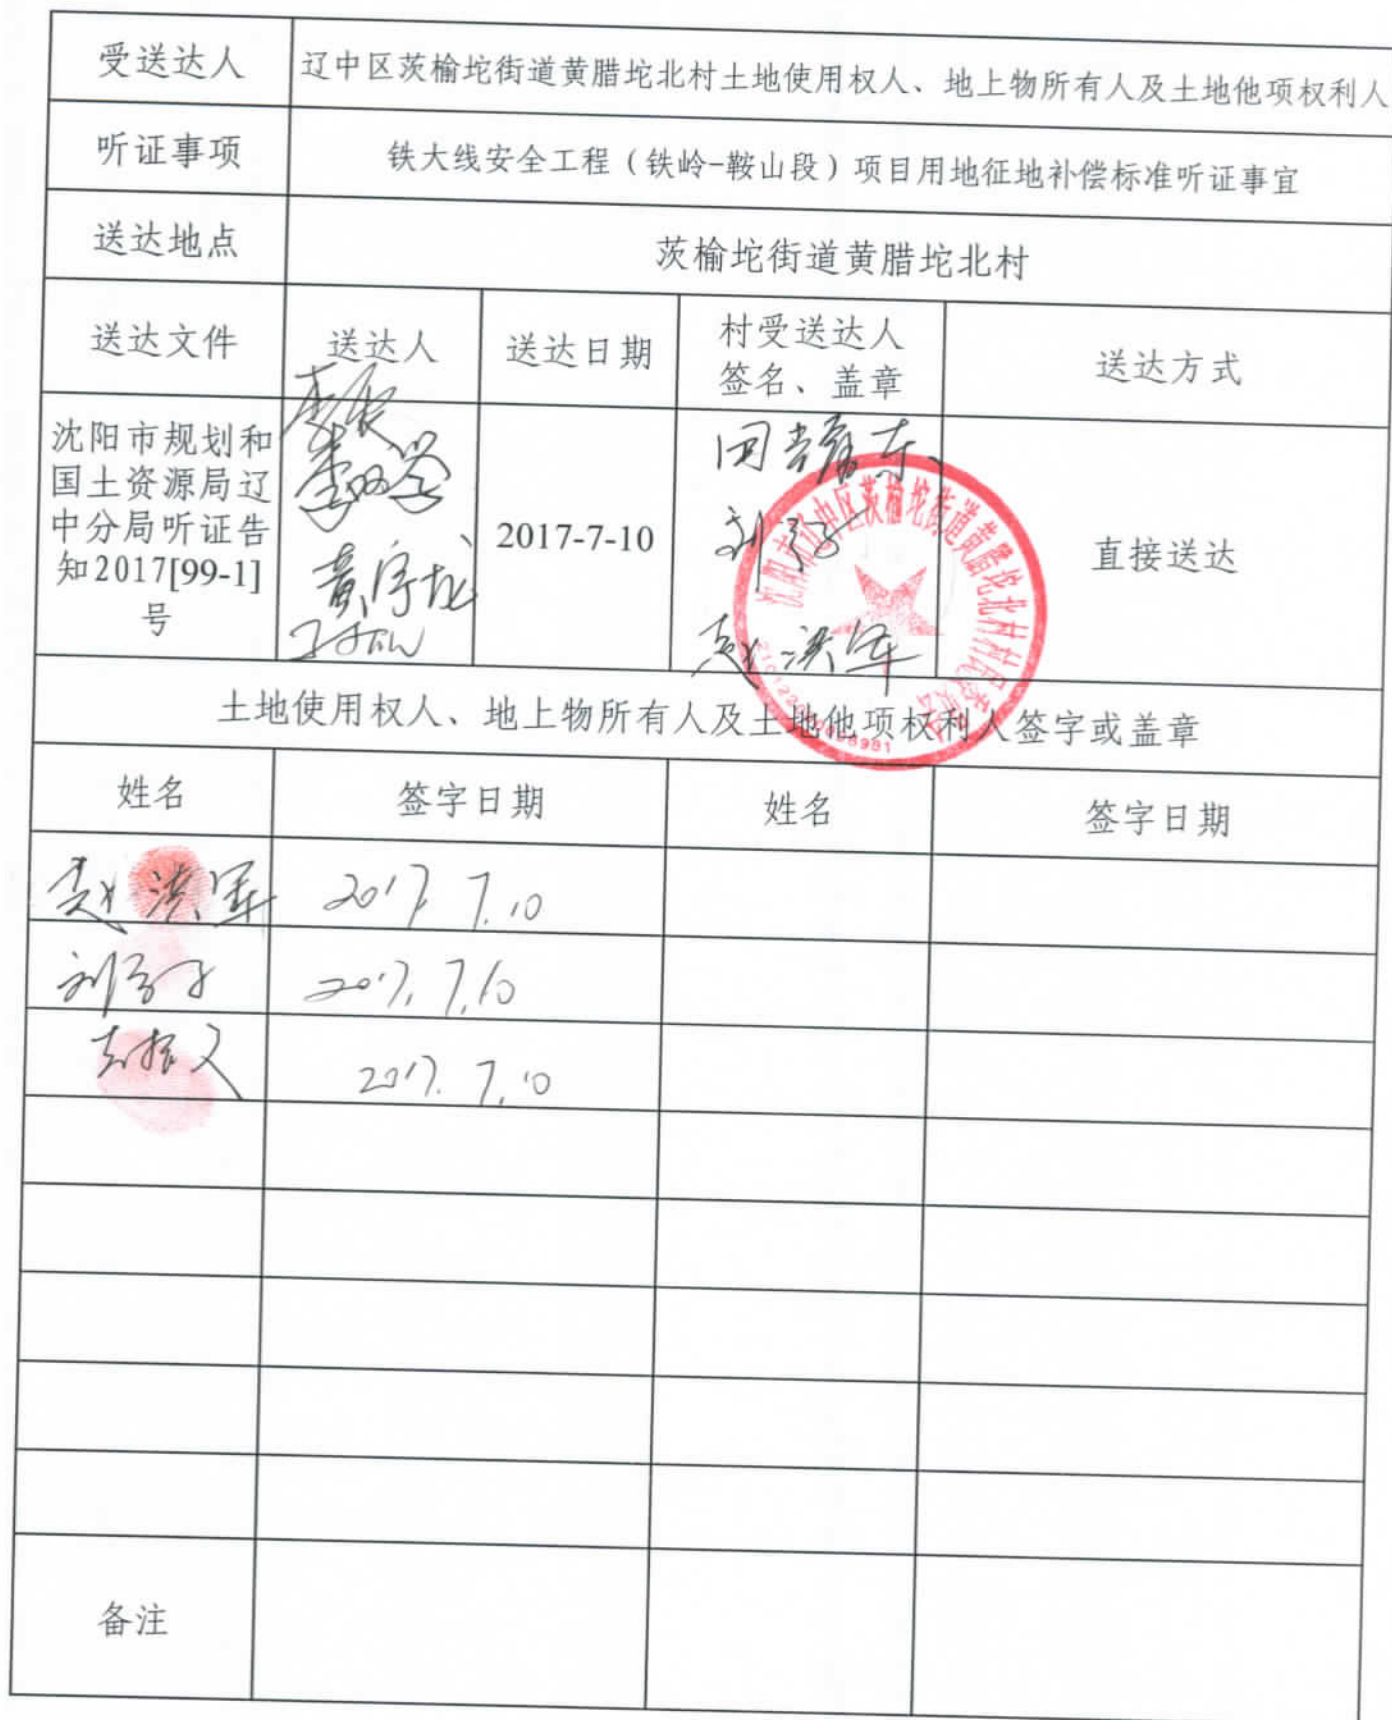 受送达人
辽中区茨榆坨街道黄腊坨北村土地使用权人、地上物所有人及土地他项权利人
听证事项
铁大线安全工程（铁岭-鞍山段）项目用地征地补偿标准听证事宜
送达地点
茨榆坨街道黄腊坨北村
送达文件
送达人
送达日期
村受送达人
签名、盖章
送达方式
沈阳市规划和
国土资源局辽
中分局听证告
知2017[99-1]
号
黄宇龙
2017-7-10
赵洪军
直接送达
沈阳市辽中区茨榆坨街道黄腊坨北村村民委员会
土地使用权人、地上物所有人及土地他项权利人签字或盖章
姓名
签字日期
姓名
签字日期
赵洪军
2017 7.10
2017.7.10
2017.7.10
备注